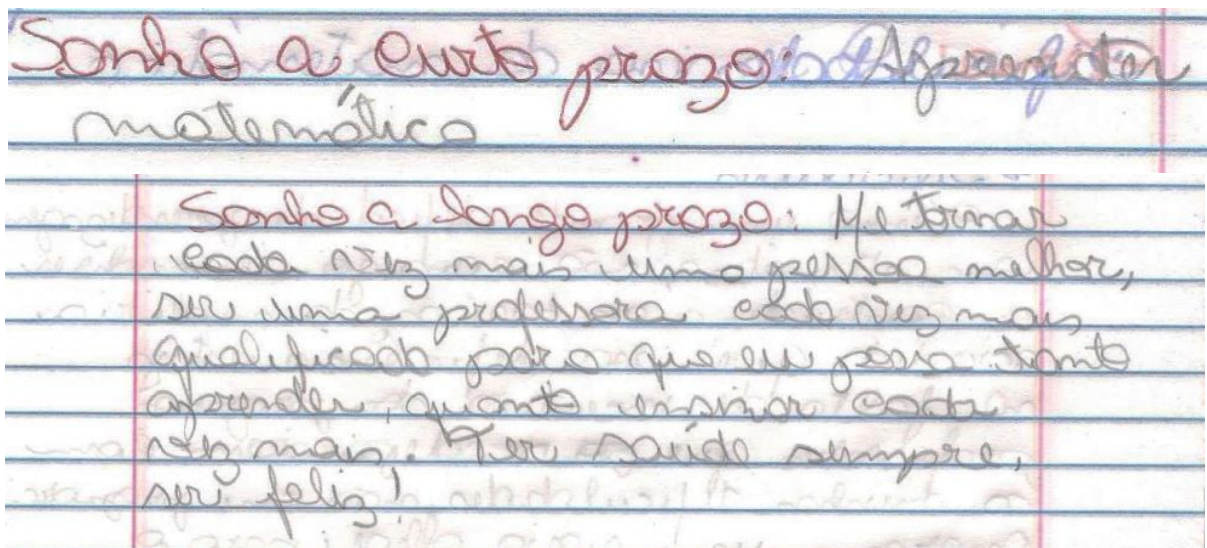 Sonho a curto prazo: Aprender
matemática
Sonho a longo prazo: Me tornar
cada vez mais uma pessoa melhor,
ser uma professora cada vez mais
qualificada para que eu possa tanto
aprender, quanto ensinar cada
vez mais. Ter saúde sempre,
ser feliz!